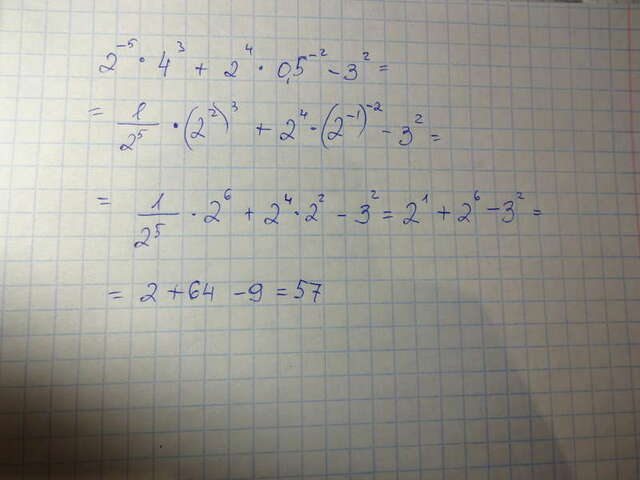 2⁻⁵ · 4³ + 2⁴ · 0,5⁻² − 3² =
= 1/2⁵ · (2²)³ + 2⁴ · (2⁻¹)⁻² − 3² =
= 1/2⁵ · 2⁶ + 2⁴ · 2² − 3² = 2¹ + 2⁶ − 3² =
= 2 + 64 − 9 = 57